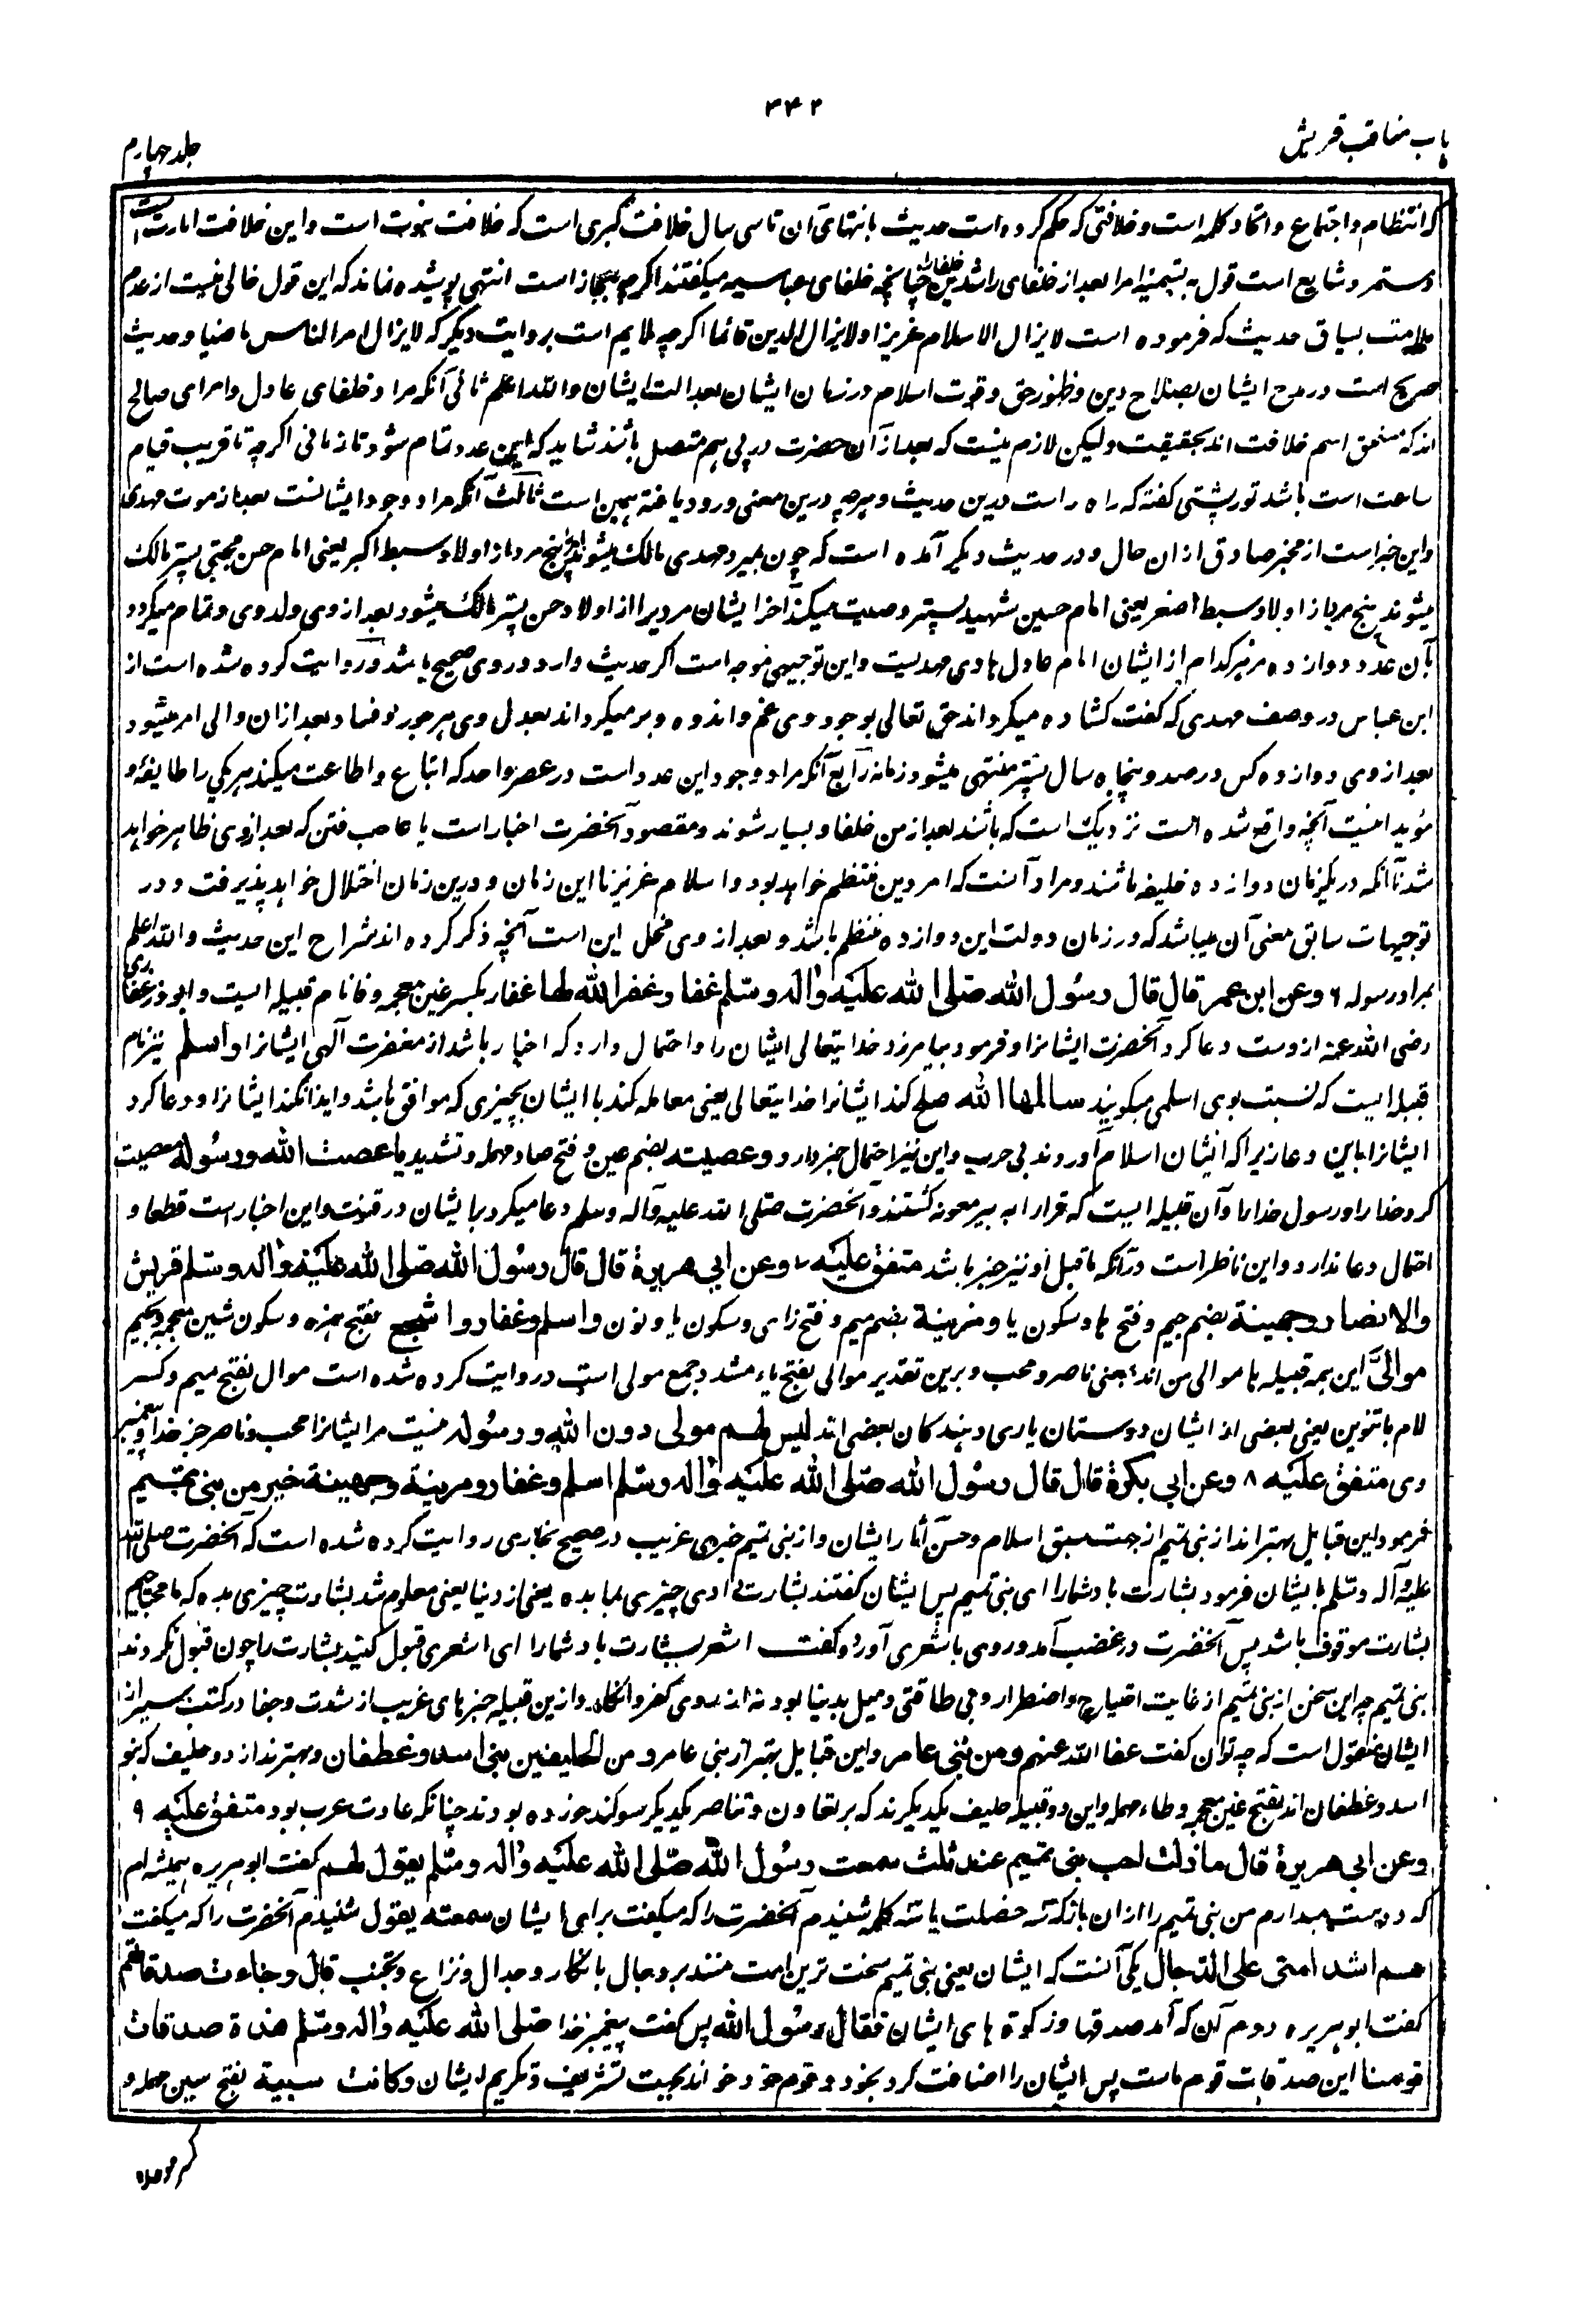 ۳۴۲
باب مناقب قریش
جلد چهارم
که انتظام و اجتماع و اتحاد کلمه است و خلافتی که حکم کرده است حدیث بانتهای آن تا سی سال خلافت کبری است که خلافت نبوت است و این خلافت امارت است
و مستمر و شایع است قول به تسمیه امرا بعد از خلفای راشدین خلفا چنانچه خلفای عباسیه میگفتند اگرچه مجاز است انتهی پوشیده نماند که این قول خالی نیست از عدم
ملایمت بسیاق حدیث که فرموده است لایزال الاسلام عزیزا و لایزال الدین قائما اگرچه ملایم است بروایت دیگر که لایزال امر الناس ماضیا و حدیث
صریح است در مدح ایشان بصلاح دین و ظهور حق و قوت اسلام در زمان ایشان بعدالت ایشان والله اعلم ثانی آنکه مراد خلفای عادل و امرای صالح
اند که مستحق اسم خلافت اند بحقیقت ولیکن لازم نیست که بعد از آن حضرت در پی هم متصل باشند شاید که این عدد تمام شود تا زمانی اگرچه تا قریب قیام
ساعت است باشد تورپشتی گفته که راه راست درین حدیث و هرچه درین معنی ورود یافته همین است ثالث آنکه مراد وجود ایشانست بعد از موت مهدی
و این خبر است از مخبر صادق ازان حال و در حدیث دیگر آمده است که چون بمیرد مهدی مالک میشوند پنج مرد از اولاد سبط اکبر یعنی امام حسن مجتبی پستر مالک
میشوند پنج مرد از اولاد سبط اصغر یعنی امام حسین شهید پستر وصیت میکند آخر ایشان مردیرا از اولاد حسن پستر مالک میشود بعد از وی ولد وی و تمام میگردد
بآن عدد دوازده مرد هر کدام از ایشان امام عادل هادی مهدیست و این توجیهی موجه است اگر حدیث وارد در وی صحیح باشد و روایت کرده شده است از
ابن عباس در وصف مهدی که گفت کشاده میگرداند حق تعالی بوجود وی غم و اندوه و بر میگرداند بعدل وی هر جور و فساد بعد ازان والی امر میشود
بعد از وی دوازده کس در صد و پنجاه سال پستر منتهی میشود زمانه رابع آنکه مراد وجود این عدد است در عصر واحد که اتباع و اطاعت میکند هر یکی را طایفه و
مؤید اینست آنچه واقع شده است نزدیک است که باشند بعد از من خلفا و بسیار شوند و مقصود آنحضرت اخبار است با عاجیب فتن که بعد از وی ظاهر خواهد
شد تا آنکه در یکزمان دوازده خلیفه باشند و مراد آنست که امر دین منتظم خواهد بود و اسلام عزیز تا این زمان و درین زمان اختلال خواهد پذیرفت و در
توجیهات سابق معنی آن میباشد که در زمان دولت این دوازده منتظم باشد و بعد از وی مختل این است آنچه ذکر کرده اند شراح این حدیث والله اعلم
بمراد رسوله ۶ وعن ابن عمر قال قال رسول الله صلی الله علیه واله وسلم غفار غفر الله لها غفار بکسر غین معجمه و فا نام قبیله ایست و ابوذر غفاری
رضی الله عنه ازوست دعا کرد آنحضرت ایشانرا و فرمود بیامرزد خدایتعالی ایشان را و احتمال دارد که اخبار باشد از مغفرت آلهی ایشانرا واسلم نیز نام
قبیله ایست که نسبت بوی اسلمی میگویند سالمها الله صلح کند ایشانرا خدایتعالی یعنی معامله کند با ایشان بچیزی که موافق باشد و ایذا نکند ایشانرا و دعا کرد
ایشانرا باین دعا زیرا که ایشان اسلام آوردند بی حرب و این نیز احتمال خبر دارد وعصیة بضم عین و فتح صاد مهمله و تشدید یا عصت الله ورسوله معصیت
کرد خدا را و رسول خدا را و آن قبیله ایست که قراء را به بیر معونه کشتند و آنحضرت صلی الله علیه وآله وسلم دعا میکرد بر ایشان در قنوت و این اخبار است قطعا و
احتمال دعا ندارد و این ناظر است در آنکه ماقبل او نیز خبر باشد متفق علیه ۷ وعن ابی هریرة قال قال رسول الله صلی الله علیه واله وسلم قریش
والانصار وجهینة بضم جیم و فتح ها و سکون یا ومزینة بضم میم و فتح زای و سکون یا و نون واسلم وغفار واشجع بفتح همزه و سکون شین معجمه و جیم
موالیَّ این همه قبیله ها موالی من اند بمعنی ناصر و محب و برین تقدیر موالی بفتح یاء مشدد جمع مولی است و روایت کرده شده است موال بفتح میم و کسر
لام با تنوین یعنی بعضی از ایشان دوستان یاری دهندگان بعضی اند لیس لهم مولی دون الله ورسوله نیست مر ایشانرا محب و ناصر جز خدا و پیغمبر
وی متفق علیه ۸ وعن ابی بکرة قال قال رسول الله صلی الله علیه واله وسلم اسلم وغفار ومزینة وجهینة خیر من بنی تمیم
فرمود این قبایل بهتر اند از بنی تمیم از جهت سبق اسلام و حسن آثار ایشان و از بنی تمیم خبری غریب در صحیح بخاری روایت کرده شده است که آنحضرت صلی الله
علیه وآله وسلم بایشان فرمود بشارت باد شما را ای بنی تمیم پس ایشان گفتند بشارت دادی چیزی بما بده یعنی از دنیا یعنی معلوم شد بشارت چیزی بده که ما محتاجیم
بشارت موقوف باشد پس آنحضرت در غضب آمد و روی باشعری آورد و گفت اشعر بشارت باد شما را ای اشعری قبول کنید بشارت را چون قبول نکردند
بنی تمیم چه این سخن از بنی تمیم از غایت احتیاج و اضطرار و بی طاقتی و میل بدنیا بود نه از روی کفر و انکار و ازین قبیله خبرهای غریب از شدت و جفا در کتب سیر از
ایشان منقول است که چه توان گفت عفا الله عنهم ومن بنی عامر و این قبایل بهتر از بنی عامر ومن الحلیفین بنی اسد وغطفان و بهترند از دو حلیف که بنو
اسد و غطفان اند بفتح غین معجمه و طاء مهمله و این دو قبیله حلیف یکدیگرند که بر تعاون و تناصر یکدیگر سوگند خورده بودند چنانکه عادت عرب بود متفق علیه ۹
وعن ابی هریرة قال ما زلت احب بنی تمیم عند ثلث سمعت رسول الله صلی الله علیه واله وسلم یقول لهم گفت ابو هریره همیشه ام
که دوست میدارم من بنی تمیم را ازان باز که سه خصلت یا سه کلمه شنیدم آنحضرت را که میگفت برای ایشان سمعته یقول شنیدم آنحضرت را که میگفت
هم اشد امتی علی الدجال یکی آنست که ایشان یعنی بنی تمیم سخت ترین امت منند بر دجال بانکار و جدال و نزاع و تجنب قال وجاءت صدقاتهم
گفت ابو هریره دوم آن که آمد صدقها و زکوة های ایشان فقال رسول الله پس گفت پیغمبر خدا صلی الله علیه واله وسلم هذه صدقات
قومنا این صدقات قوم ماست پس ایشان را اضافت کرد بخود و قوم خود خواند بجهت تشریف و تکریم ایشان وکانت سبیة بفتح سین مهمله و